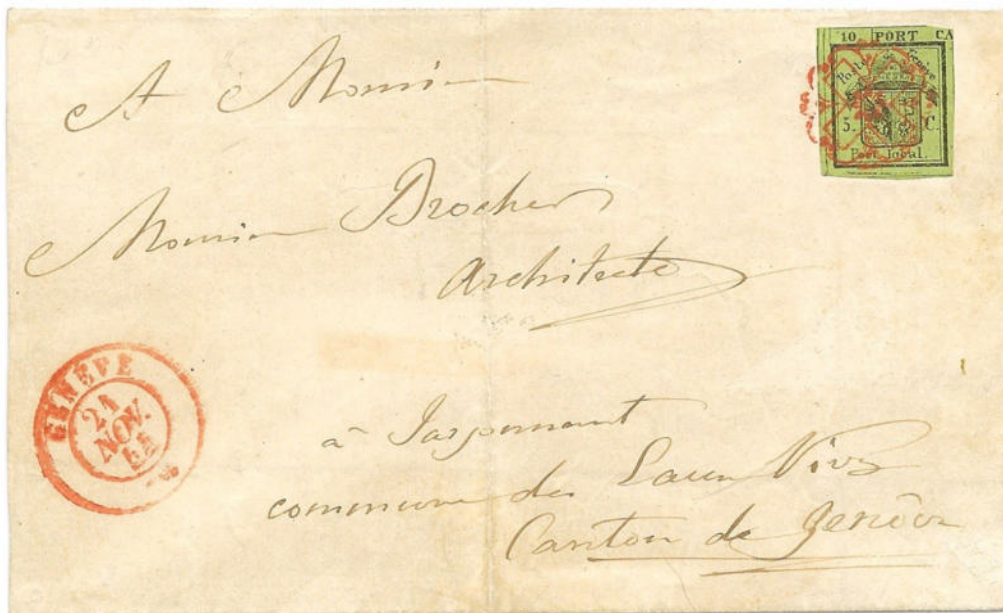 10 PORT CA
Poste de Genève
5. C.
Port local.
A Monsieur
Monsieur Brocher
Architecte
GENEVE
21
NOV.
à
commune des Eaux Vives
Canton de Genève